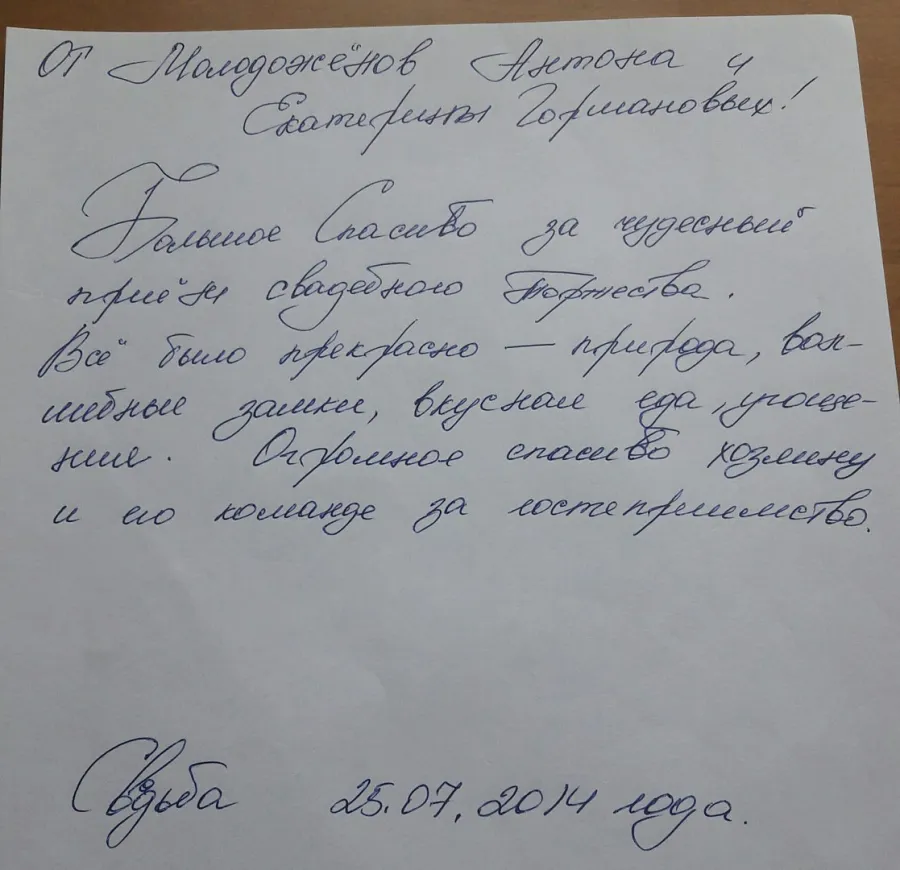 От Молодожёнов Антона и
Екатерины Гормановых!
Большое Спасибо за чудесный
приём свадебного торжества.
Всё было прекрасно — природа, вол-
шебные замки, вкусная еда, угоще-
ние. Огромное спасибо хозяину
и его команде за гостеприимство.
Свадьба 25.07.2014 года.